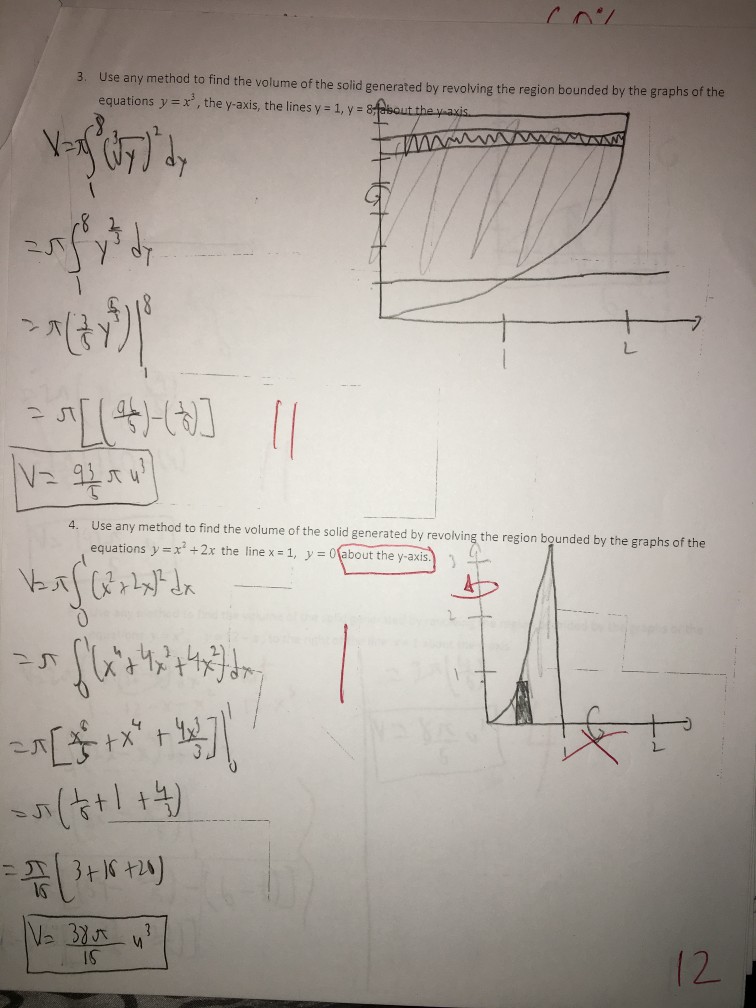 3. Use any method to find the volume of the solid generated by revolving the region bounded by the graphs of the
equations y = x³, the y-axis, the lines y = 1, y = 8, about the y-axis.
V=π∫₁⁸(∛y)²dy
=π∫₁⁸ y^(2/3) dy
=π(3/5 y^(5/3))|₁⁸
=π[(96/5)-(3/5)]
V= 93/5 π u³
1 2
11
4. Use any method to find the volume of the solid generated by revolving the region bounded by the graphs of the
equations y = x² + 2x the line x = 1, y = 0 about the y-axis.
V=π∫₀¹(x²+2x)²dx
=π∫₀¹(x⁴+4x³+4x²)dx
=π[x⁵/5+x⁴+4x³/3]|₀¹
=π(1/5+1+4/3)
=π/15(3+15+20)
V= 38π/15 u³
3
2
1
1 2
1
12